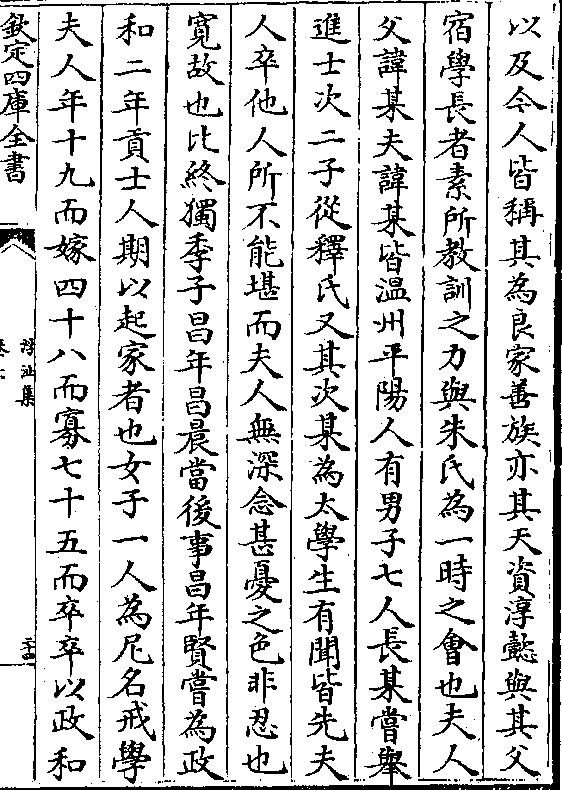 以及今人皆稱其為良家善族亦其天資淳懿與其父
宿學長者素所教訓之力與朱氏為一時之會也夫人
父諱某夫諱某皆溫州平陽人有男子七人長某嘗舉
進士次二子從釋氏又其次某為太學生有聞皆先夫
人卒他人所不能堪而夫人無深念甚憂之色非忍也
寛故也比終獨季子昌年昌晨當後事昌年賢嘗為政
和二年貢士人期以起家者也女子一人為尼名戒學
夫人年十九而嫁四十八而寡七十五而卒卒以政和
欽定四庫全書
浮沚集
二十四